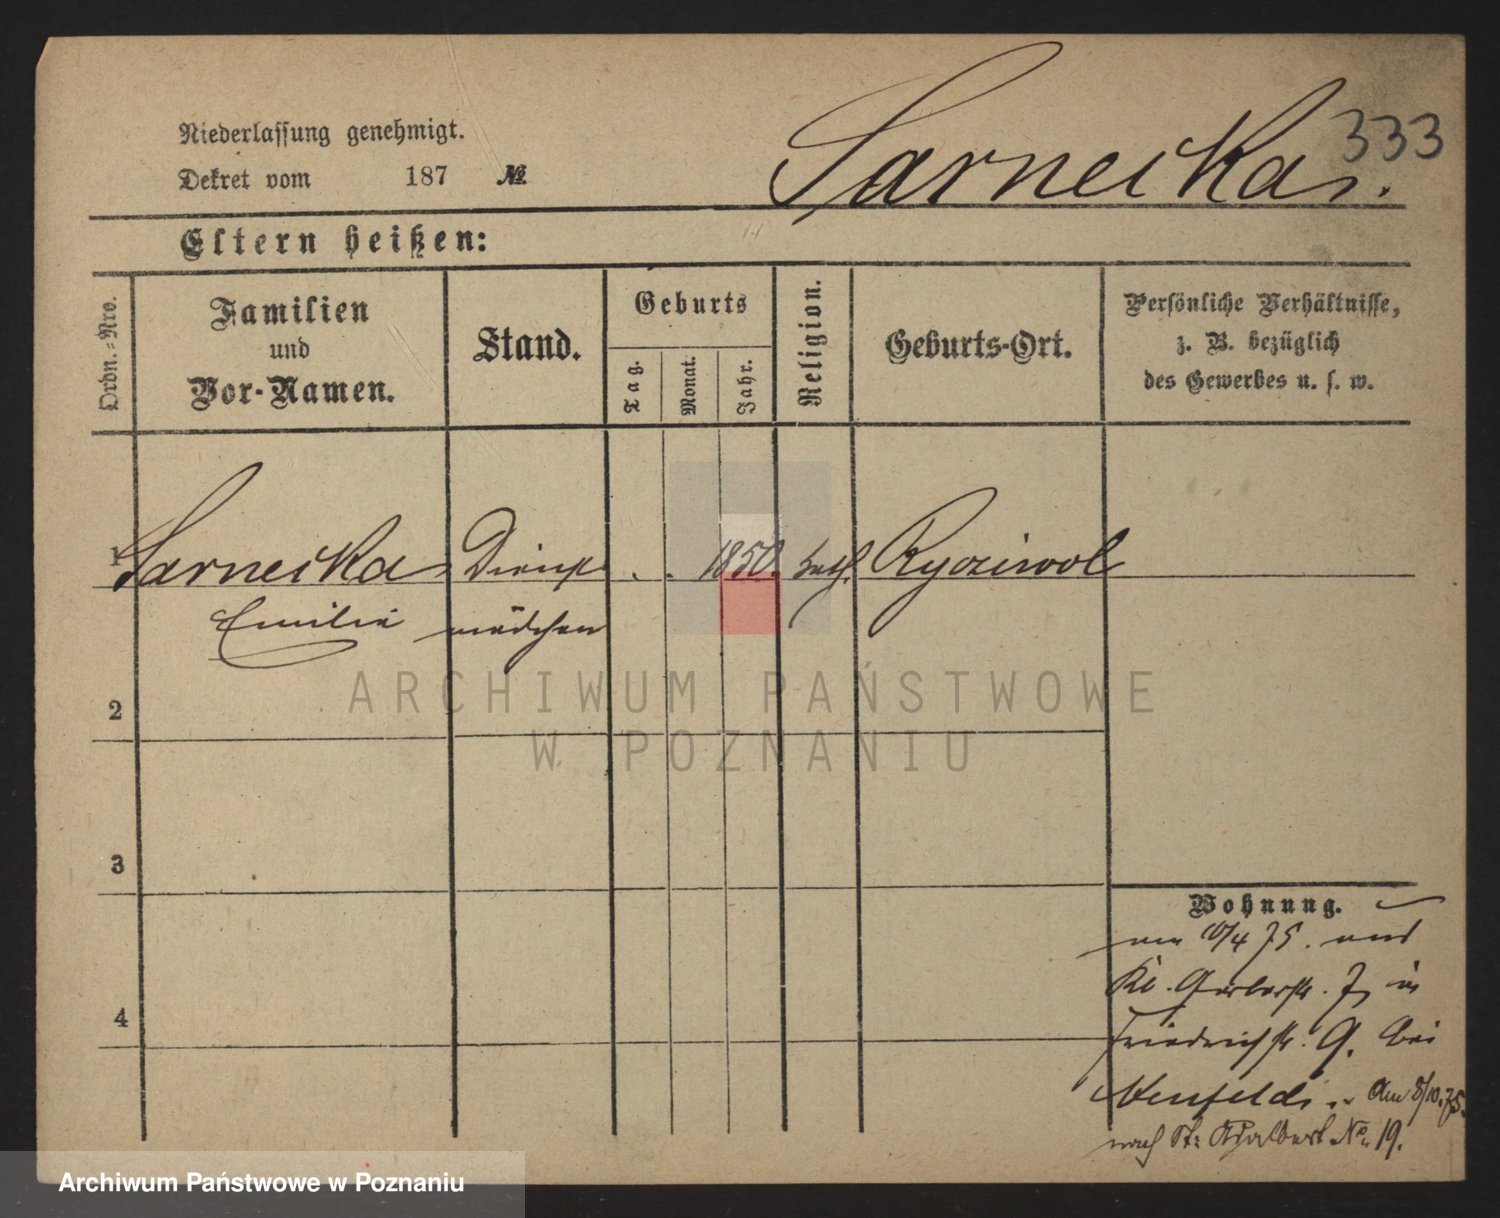 333
Sarnecka.
Niederlassung genehmigt.
Dekret vom 187 №
Eltern heißen:
Ordn.-Nro.
Familien
und
Vor-Namen.
Stand.
Geburts
Tag.
Monat.
Jahr.
Religion.
Geburts-Ort.
Persönliche Verhältnisse,
z. B. bezüglich
des Gewerbes u. s. w.
1 Sarnecka Dienst 1850. kath. Rycziwol
Emilie mädchen
2
ARCHIWUM PAŃSTWOWE
W POZNANIU
3
Wohnung.
am 10/4 75. aus
Kl. Gerberstr. 7, in
Friedrichstr. 9. bei
Neufeld. Am 8/10.75.
4
nach St: Adalbert No. 19.
Archiwum Państwowe w Poznaniu